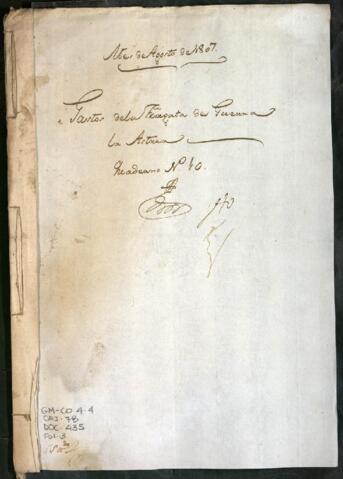 Mes de Agosto de 1807.
Gastos dela Fragata de Guerra
la Astrea
Quaderno Nº 10.
GM-CO 4-4
CAJ-78
DOC-435
FOL-3